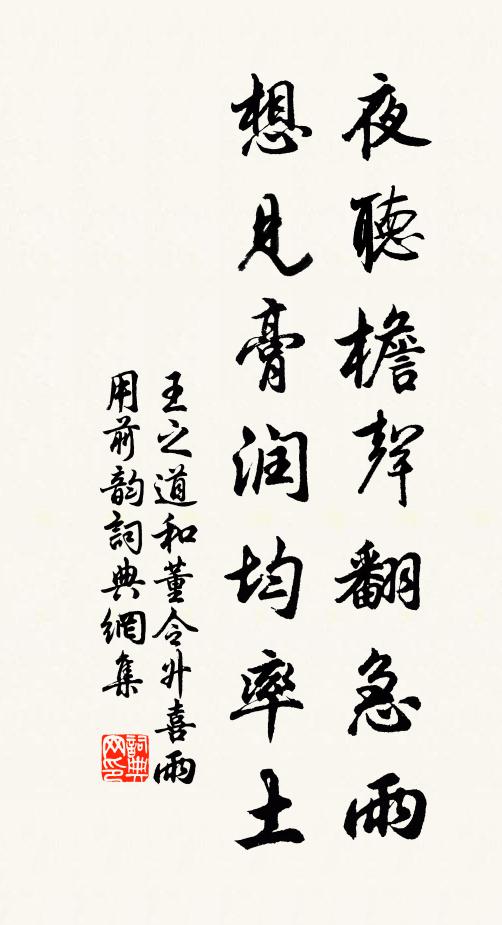 夜聽檐聲翻急雨
想見膏润均率土
王之道和董令升喜雨
用前韵詞典網集
詞典
网印